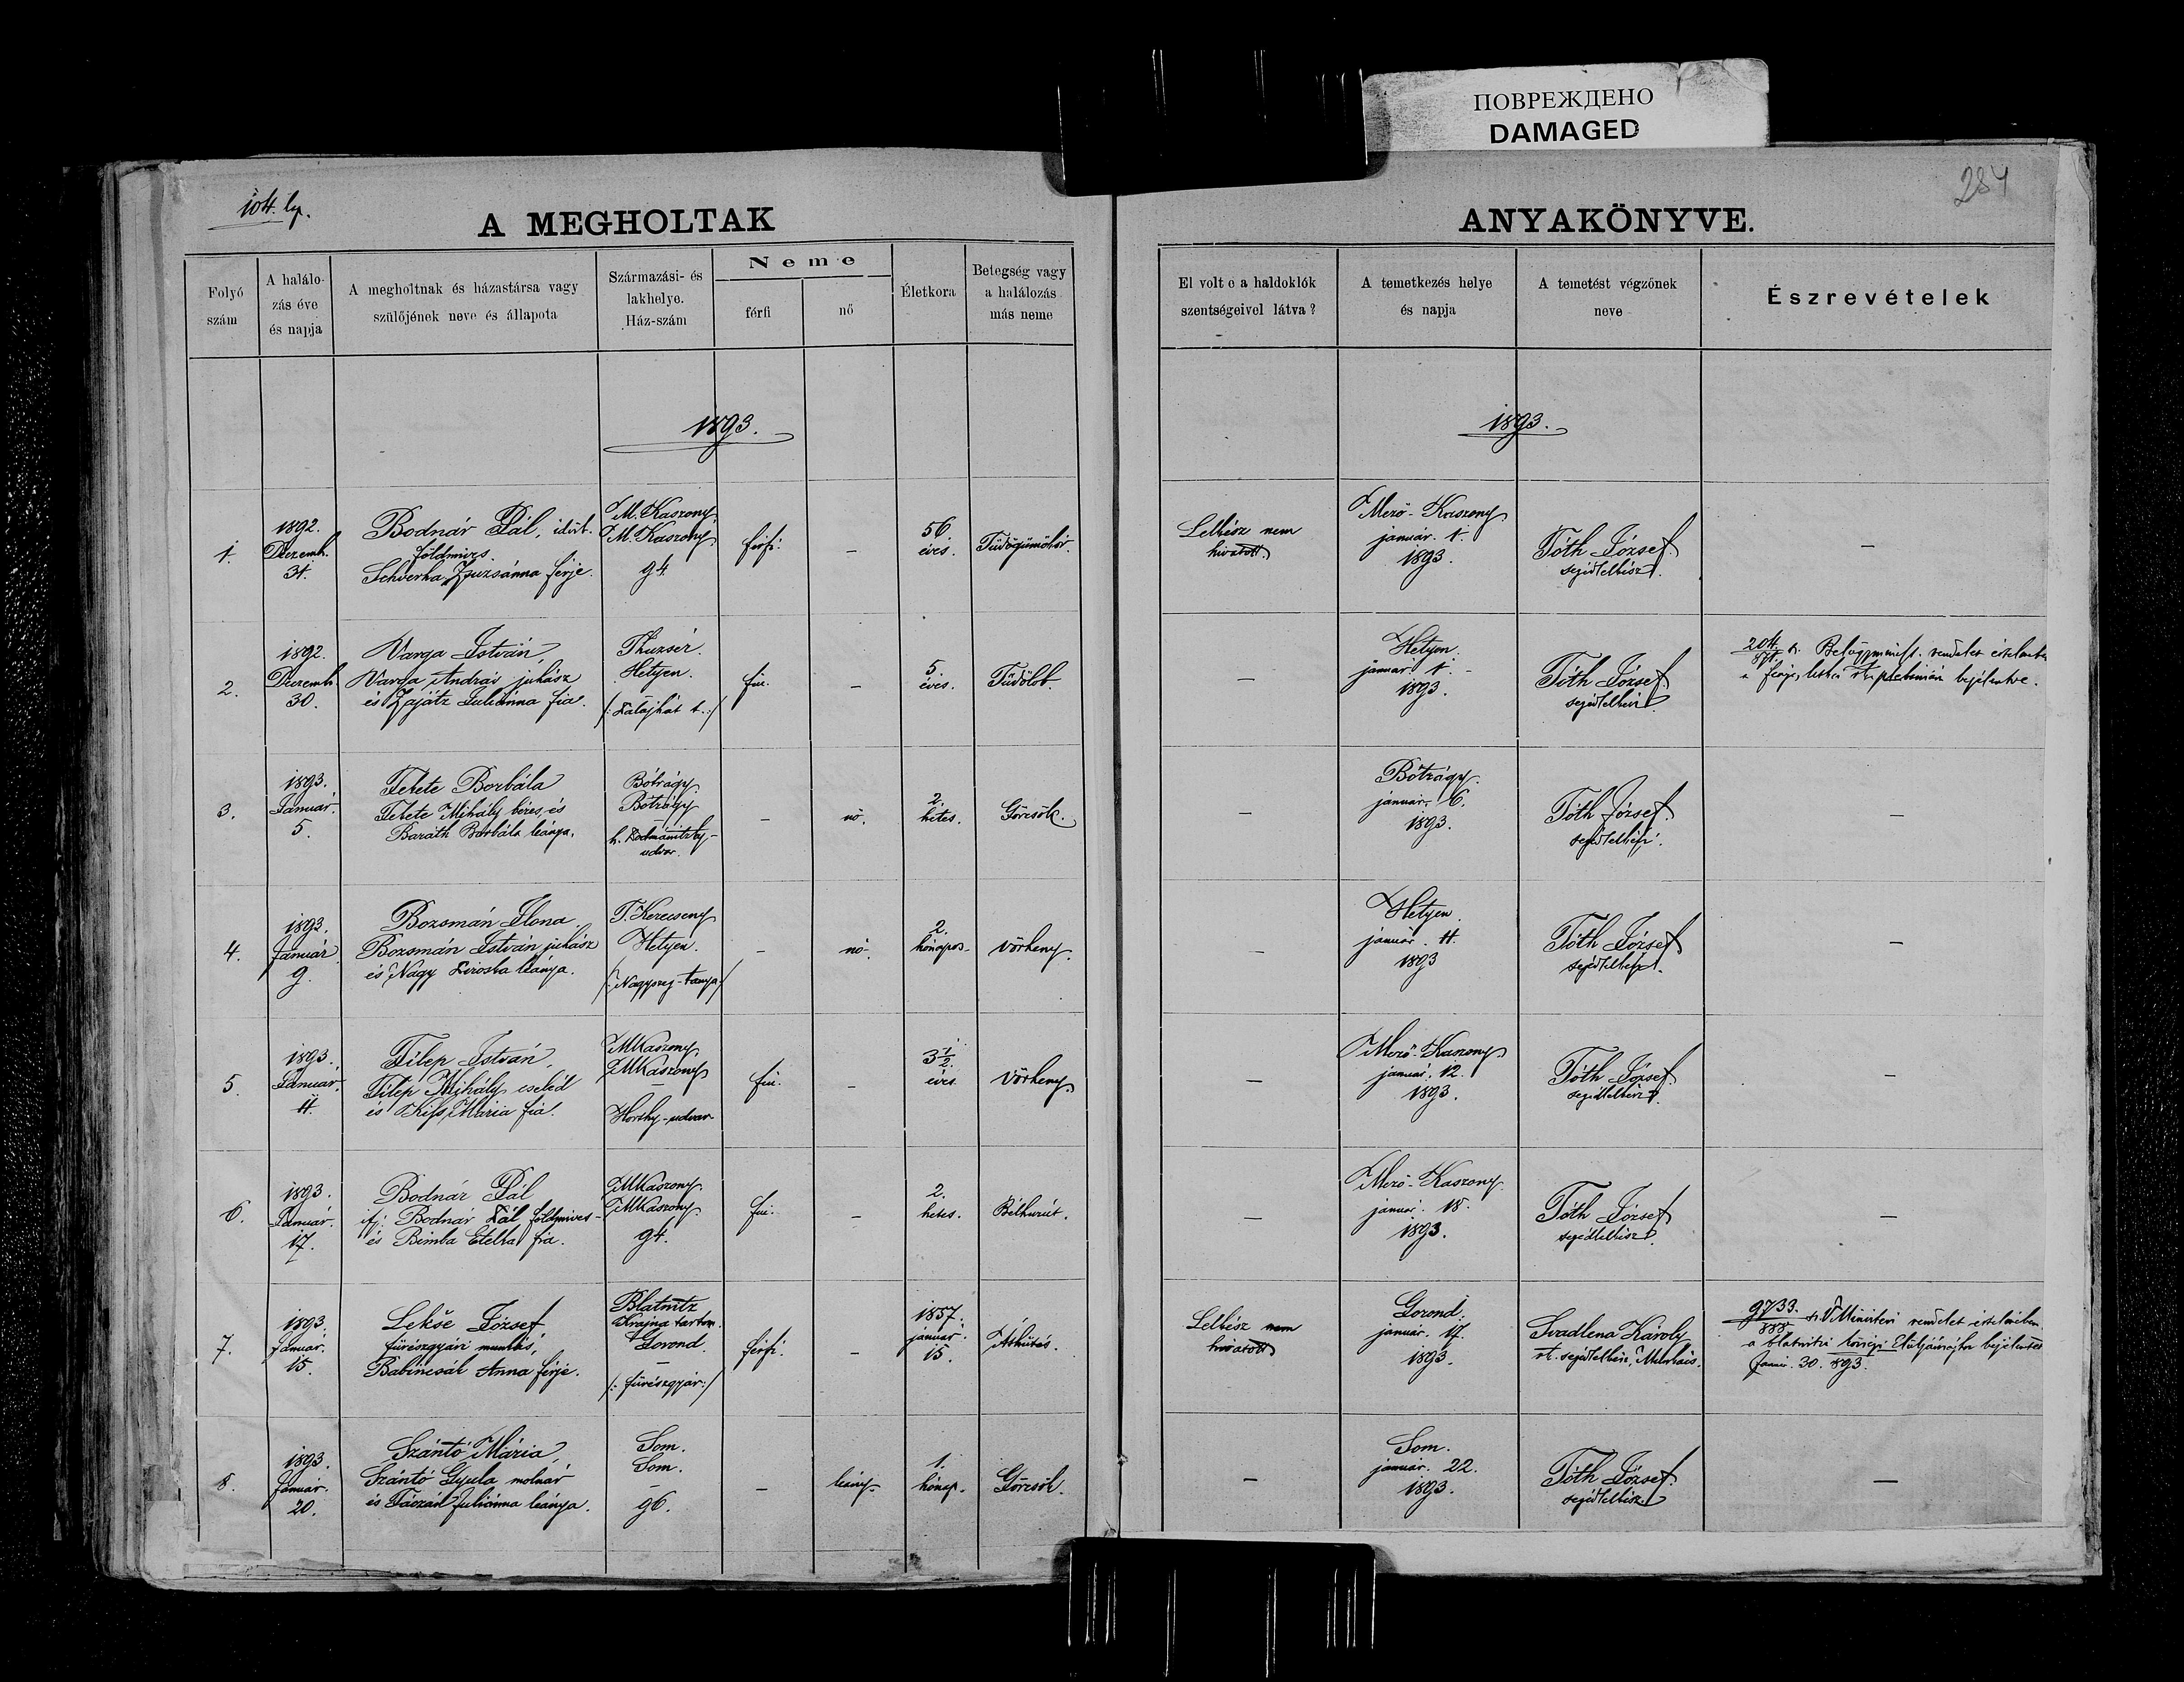 ПОВРЕЖДЕНО
DAMAGED
104. lp.
284
A MEGHOLTAK
ANYAKÖNYVE.
Folyó
szám
A halálo-
zás éve
és napja
A megholtnak és házastársa vagy
szülőjének neve és állapota
Származási- és
lakhelye.
Ház-szám
Neme
férfi
nő
Életkora
Betegség vagy
a halálozás
más neme
El volt e a haldoklók
szentségeivel látva?
A temetkezés helye
és napja
A temetést végzőnek
neve
Észrevételek
1893.
1893.
1.
1892.
Dezemb.
31.
Bodnár Pál, idősb.
földmives.
Zsuzsánna férje.
M. Kaszony
M. Kaszony
94.
férfi.
–
56
éves.
Tüdőgümőkór.
Lelkész nem
hivatott.
Mező-Kaszony
január. 1.
1893.
Tóth József
segédlelkész.
–
2.
1892.
Dezemb.
30.
Varga István,
Varga András juhász
és Zajátz Juliánna fia.
Thuzsér.
Hetyen.
fiu.
–
5.
éves.
Tüdőlob.
–
Hetyen.
január. 1.
1893.
Tóth József
segédlelkész
204 sz. Belügyminist. rendelet értelmében
a plebánián bejelentve.
3.
1893.
Január.
5.
Fekete Borbála
Fekete Mihály béres, és
Baráth Borbála leánya.
Bótrágy.
Bótrágy
udvar.
–
nő.
2.
hetes.
Görcsök.
–
Bótrágy.
január. 6.
1893.
Tóth József.
segédlelkész.
–
4.
1893.
Január
9.
Bozsmán Ilona
Bozsmán István juhász
és Nagy Piroska leánya.
T. Kerecseny
Hetyen.
/: Nagyszeg-tanya :/
–
nő.
2.
hónapos.
Vörheny.
–
Hetyen.
január. 11.
1893
Tóth József
segédlelkész.
–
5.
1893.
Január.
11.
Filep István,
Filep Mihály cseléd
és Kiss Mária fia.
MKaszony
MKaszony
–
Horthy-udvar
fiu.
–
3 1/2.
éves.
Vörheny.
–
Mező-Kaszony
január. 12.
1893.
Tóth József
segédlelkész.
–
6.
1893.
Január.
17.
Bodnár Pál
ifj. Bodnár Pál földmives
és Bimba Etelka fia.
MKaszony.
MKaszony.
94.
fiu.
–
2.
hetes.
Bélhurut.
–
Mező-Kaszony
január. 18.
1893.
Tóth József
segédlelkész.
–
7.
1893.
Január.
15.
Lekše József
fürészgyári munkás,
Babincsák Anna férje.
Blatnitz
Krajna tartom.
Gorond.
–
/: fürészgyár :/
férfi.
–
1857.
január.
15.
Lelkész nem
hivatott
Gorond.
január. 17.
1893.
Svadlena Károly
rk. segédlelkész, Munkács.
9733.
888 sz. Ministeri rendelet értelmében
a blatnitzi bejelentve
Január. 30. 893.
8.
1893.
Január.
20.
Szántó Mária,
Szántó Gyula molnár
és Juliánna leánya.
Som.
Som.
–
96.
–
leány.
1.
hónap.
Görcsök.
–
Som.
január. 22.
1893.
Tóth József.
segédlelkész.
–